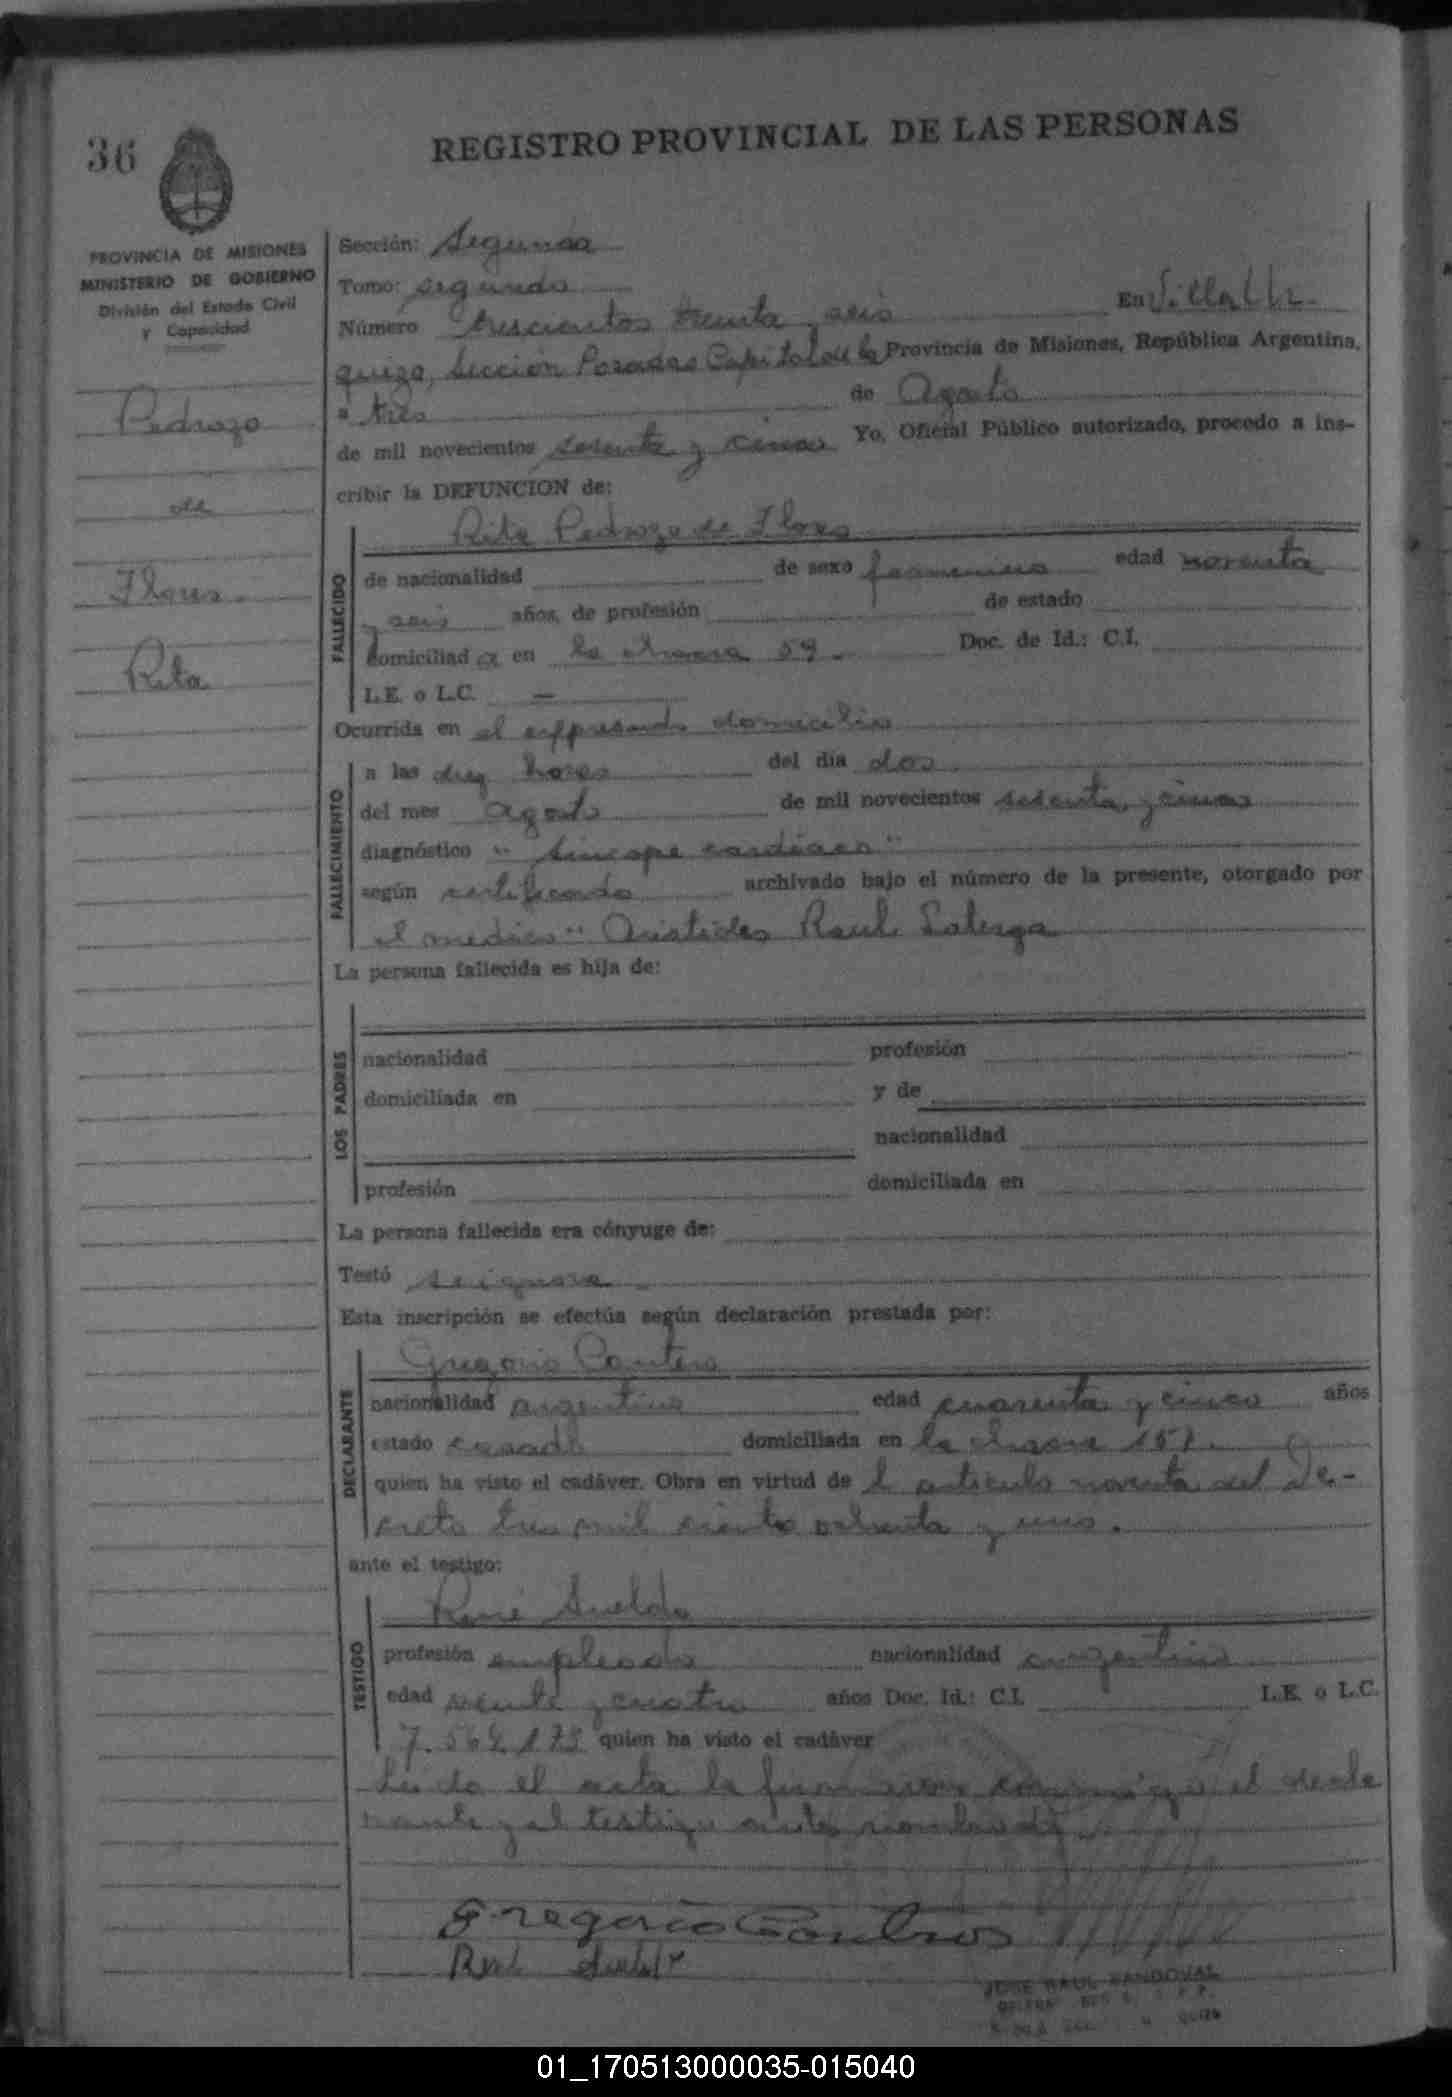 36
REGISTRO PROVINCIAL DE LAS PERSONAS
PROVINCIA DE MISIONES
MINISTERIO DE GOBIERNO
División del Estado Civil
y Capacidad
Pedrozo
de
Flores.
Rita
Sección: Segunda
Tomo: segundo
Número trescientos treinta y seis En Villa Ur-
quiza, Sección Posadas Capital de la Provincia de Misiones, República Argentina,
a tres de Agosto
de mil novecientos sesenta y cinco Yo, Oficial Público autorizado, procedo a ins-
cribir la DEFUNCION de:
Rita Pedrozo de Flores
FALLECIDO
de nacionalidad de sexo femenino edad noventa
y seis años, de profesión de estado
domiciliada en la chacra 59. Doc. de Id.: C.I.
L.E. o L.C. —
Ocurrida en el expresado domicilio
FALLECIMIENTO
a las diez horas del día dos
del mes agosto de mil novecientos sesenta y cinco
diagnóstico "síncope cardíaco"
según certificado archivado bajo el número de la presente, otorgado por
el médico " Aristides Raul
La persona fallecida es hija de:
LOS PADRES
nacionalidad profesión
domiciliada en y de
nacionalidad
profesión domiciliada en
La persona fallecida era cónyuge de:
Testó se ignora
Esta inscripción se efectúa según declaración prestada por:
Gregorio Cantero
DECLARANTE
nacionalidad argentino edad cuarenta y cinco años
estado casado domiciliada en la chacra 157.
quien ha visto el cadáver. Obra en virtud de l artículo noventa del De-
creto tres mil ciento ochenta y uno.
ante el testigo:
René Sueldo
TESTIGO
profesión empleado nacionalidad argentino
edad veinte y cuatro años Doc. Id.: C.I. L.E. o L.C.
7.564.173 quien ha visto el cadáver
Leída el acta la firman conmigo el decla
rante y el testigo antes nombrado.
Gregorio Canteros
JOSE RAUL SANDOVAL
01_170513000035-015040